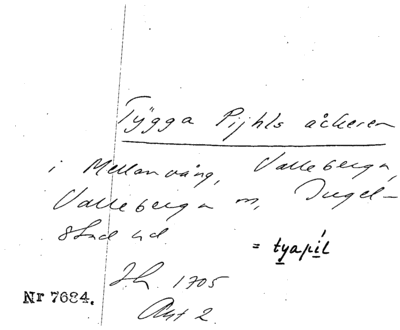 Tÿgga Pijhls åckeren
i Mellanvång, Valleberga,
Valleberga sn, Ingel-
stad hd
= tyapil
Jh. 1705
Akt 2.
Nr 7684.